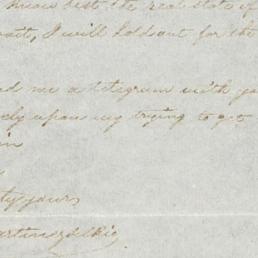 know best the real state of
wait, I will hold out for the
me a telegram with
upon my trying to get
in
yours